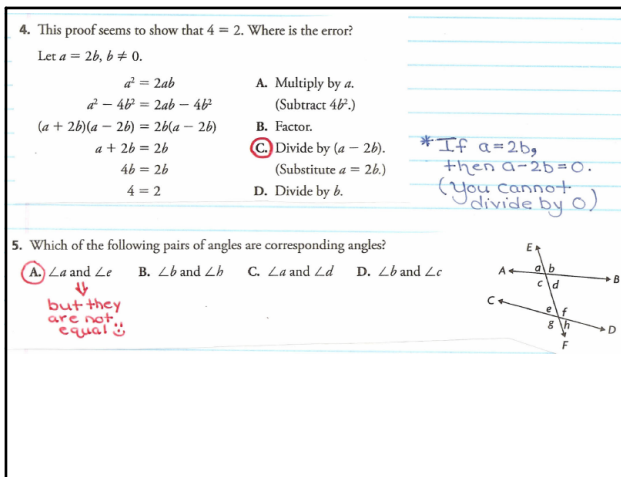 4. This proof seems to show that 4 = 2. Where is the error?
Let a = 2b, b ≠ 0.
a² = 2ab A. Multiply by a.
a² − 4b² = 2ab − 4b² (Subtract 4b².)
(a + 2b)(a − 2b) = 2b(a − 2b) B. Factor.
a + 2b = 2b C. Divide by (a − 2b).
4b = 2b (Substitute a = 2b.)
4 = 2 D. Divide by b.
* If a=2b,
then a-2b=0.
(you cannot
divide by 0)
5. Which of the following pairs of angles are corresponding angles?
A. ∠a and ∠e B. ∠b and ∠h C. ∠a and ∠d D. ∠b and ∠c
but they
are not
equal
E
A a b B
c d
C e f
g h D
F